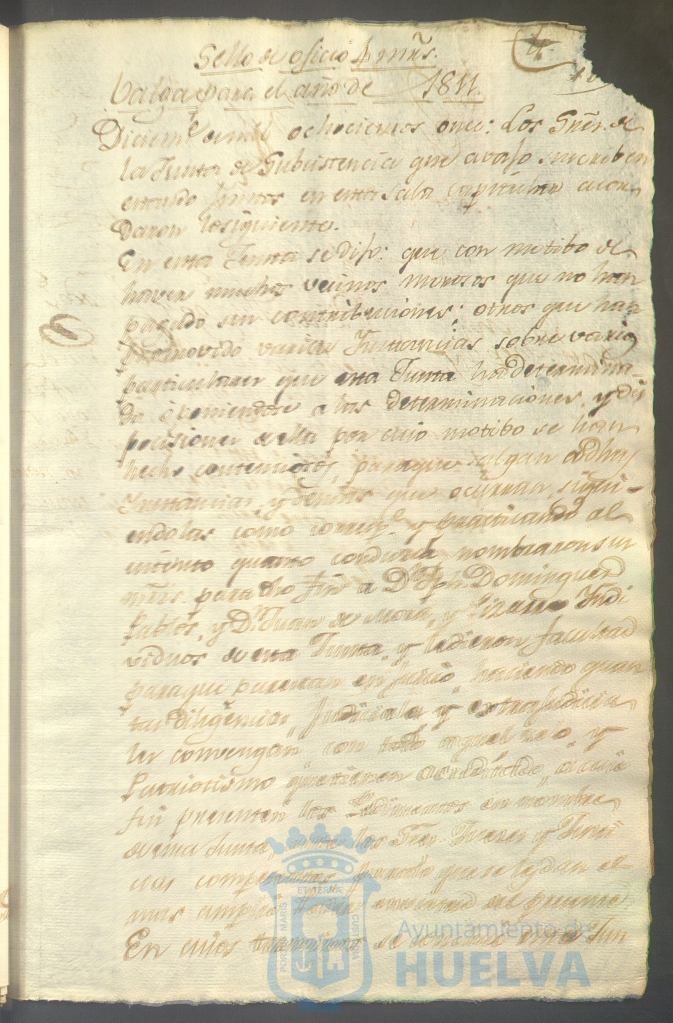 Sello de oficio 4 mrs.
Valga para el año de 1811.
Diciem.e de mil ochocientos once: Los Sres. de
la Junta de Subsistencia que avajo suscriben
estando juntos en esta Sala capitular acor
daron lo siguiente.
En esta Junta se dijo: que con motibo de
haver muchos vecinos morosos que no han
pagado sus contribuciones; otros que han
promovido varias Instancias sobre varios
particulares que esta Junta ha determina-
do oponiendose a las determinaciones, y dis
posiciones de ella por cuio motibo se han
hecho contenciosos, para que salgan a dhas
Instancias, y demas que ocurran, sigui-
endolas como corresp.e y practicando al
intento quanto conduzca nombraron sus
para dho fin a Dn. Dominguez
y Dn. Juan de Mora, y Indi
viduos de esta Junta, y le dieron facultad
para que parescan en Juicio haciendo quan
tas diligencias Judiciales y extrajudicia
les convengan con todo aquel zelo, y
Patriotismo que tienen acreditado, a cuio
fin presenten los Pedimentos en nombre
de esta Junta, ante los Sres. Jueces y
competentes para lo que se les dan el
mas amplio
En cuios se esta Jun
PORTUS MARIS ET TERRAE CUSTODIA
Ayuntamiento de
HUELVA